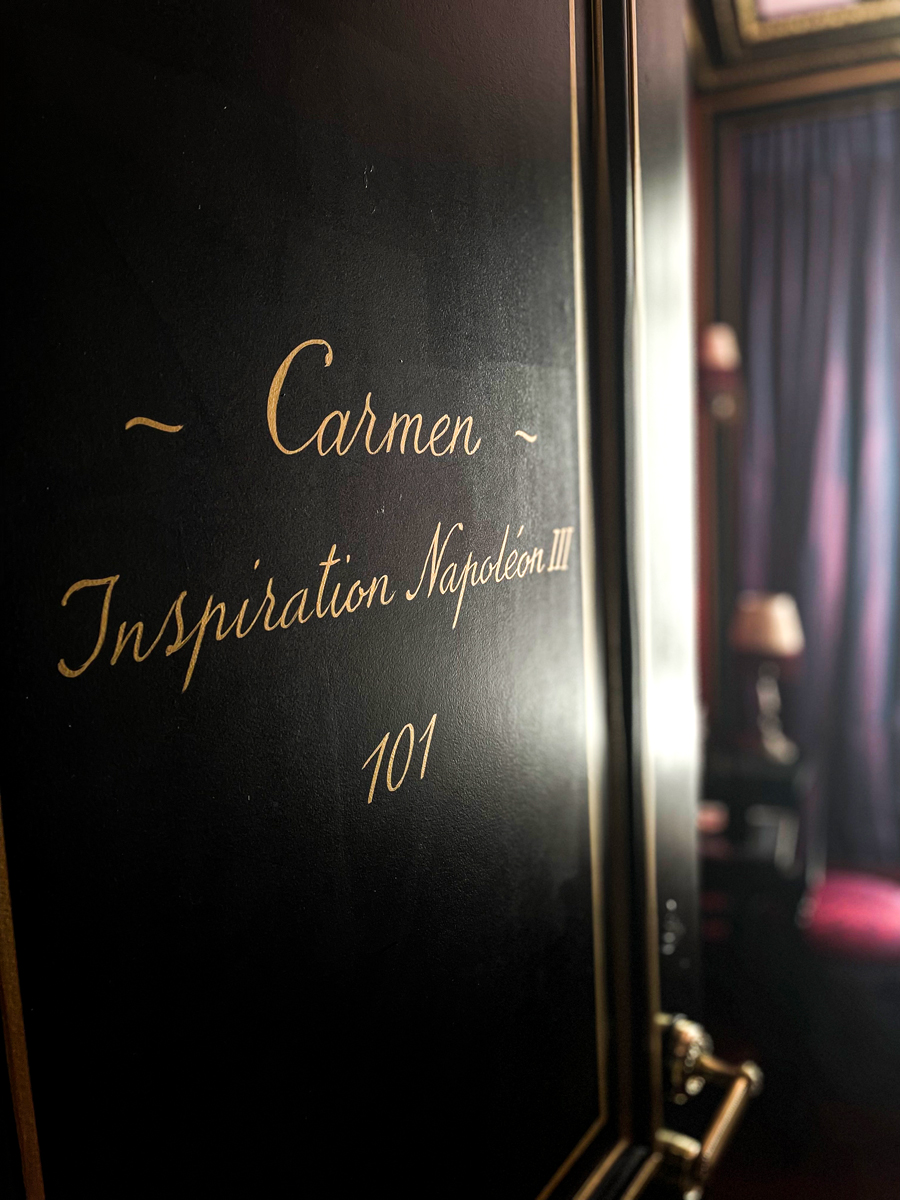 ~ Carmen ~
Inspiration Napoléon III
101